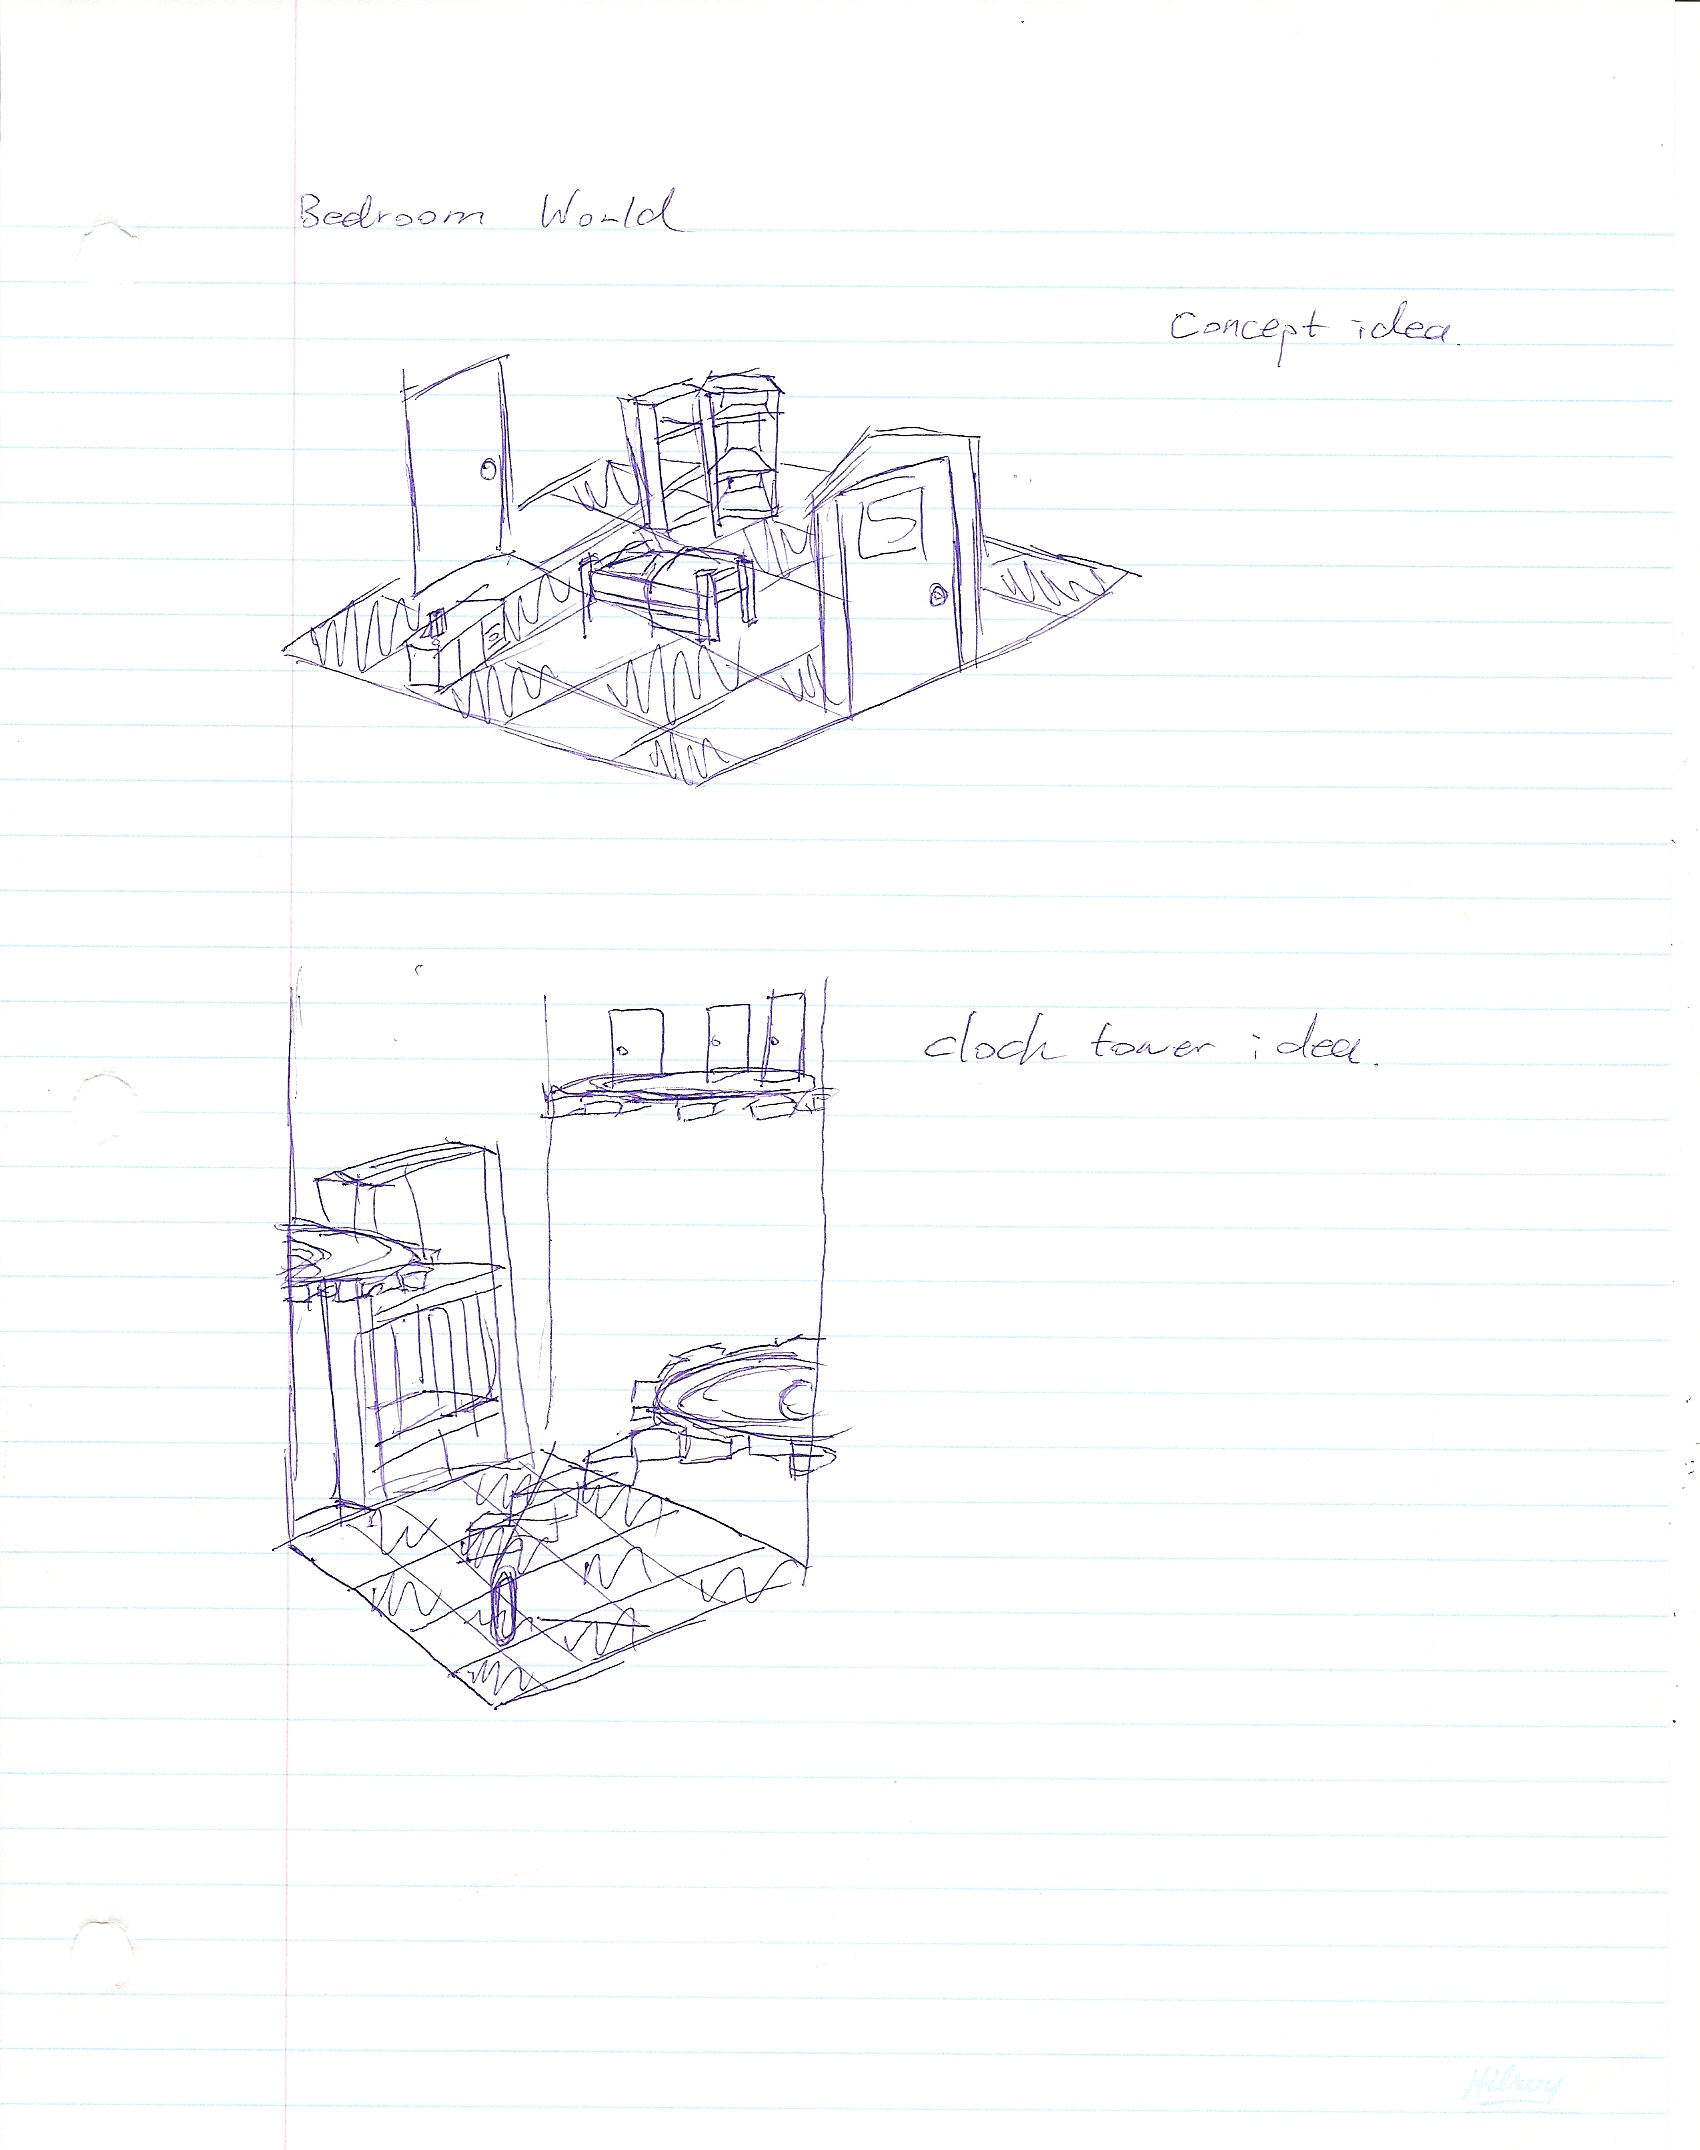 Bedroom World
Concept idea.
clock tower idea.
Hilroy